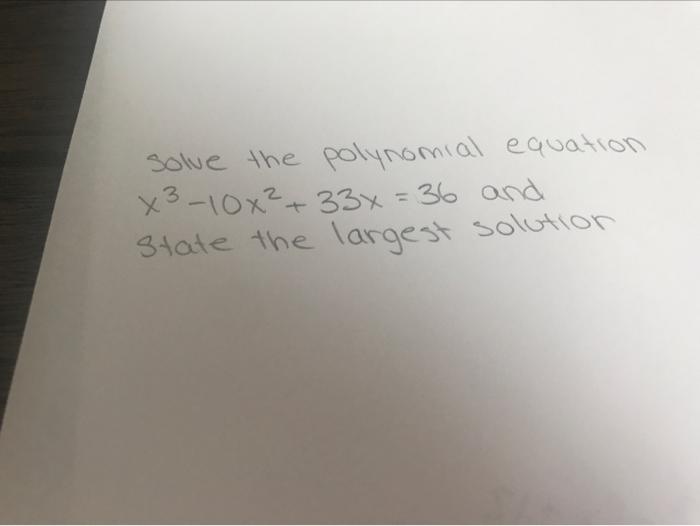 Solve the polynomial equation
x³-10x²+33x=36 and
State the largest solution